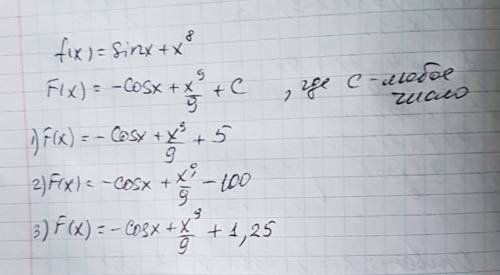 f(x) = sinx + x⁸
F(x) = -cosx + x⁹/9 + C , где С - любое число
1) F(x) = -cosx + x⁹/9 + 5
2) F(x) = -cosx + x⁹/9 - 100
3) F(x) = -cosx + x⁹/9 + 1,25